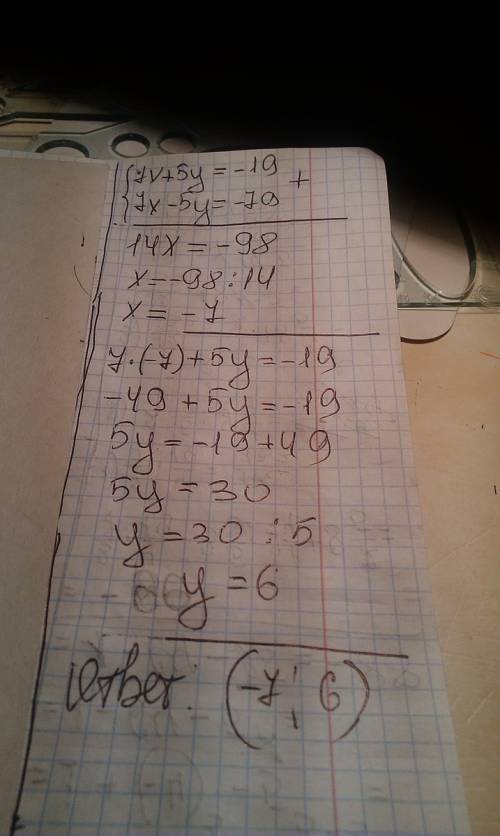 {7x+5y=-19
{7x-5y=-79 +
14x=-98
x=-98:14
x=-7
7·(-7)+5y=-19
-49+5y=-19
5y=-19+49
5y=30
y=30:5
y=6
Ответ: (-7; 6)